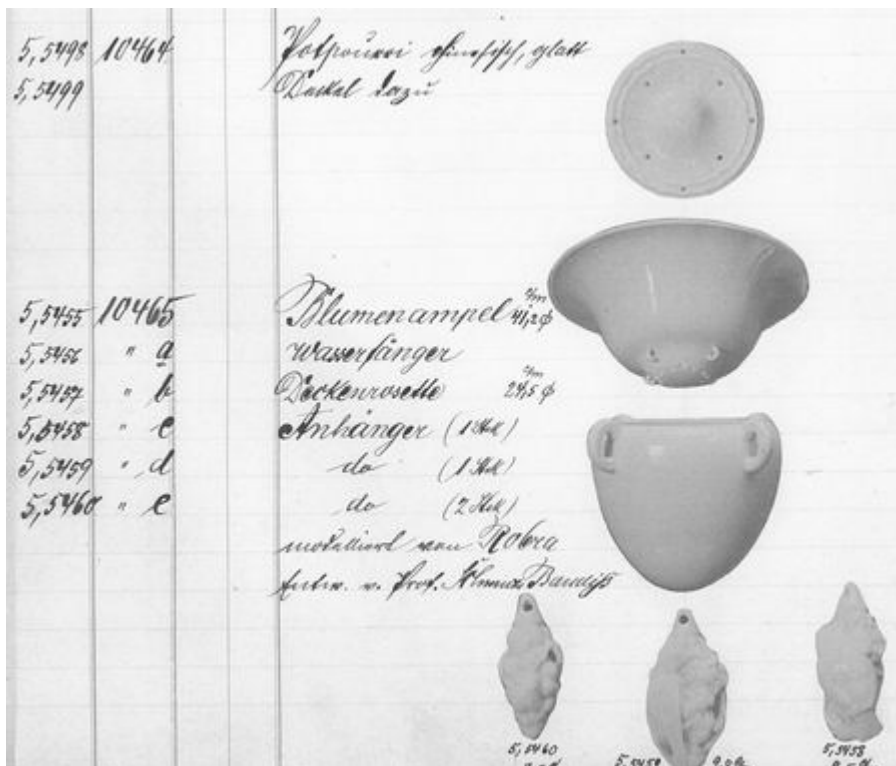 5,5498 10464 Potpourri chinesisch, glatt
5,5499 Deckel dazu
5,5455 10465 Blumenampel c/m 41,2 φ
5,5456 " a Wasserfänger
5,5457 " b Deckenrosette c/m 24,5 φ
5,5458 " c Anhänger (1 Stck)
5,5459 " d do (1 Stck)
5,5460 " e do (2 Stck)
modelliert von Robra
Entw. v. Prof.
5,5460 5,5459 5,5458